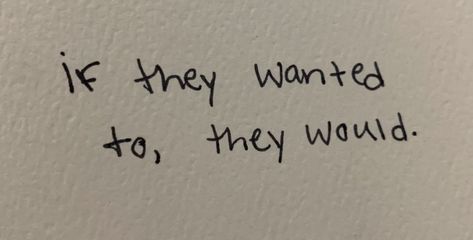 if they wanted
to, they would.